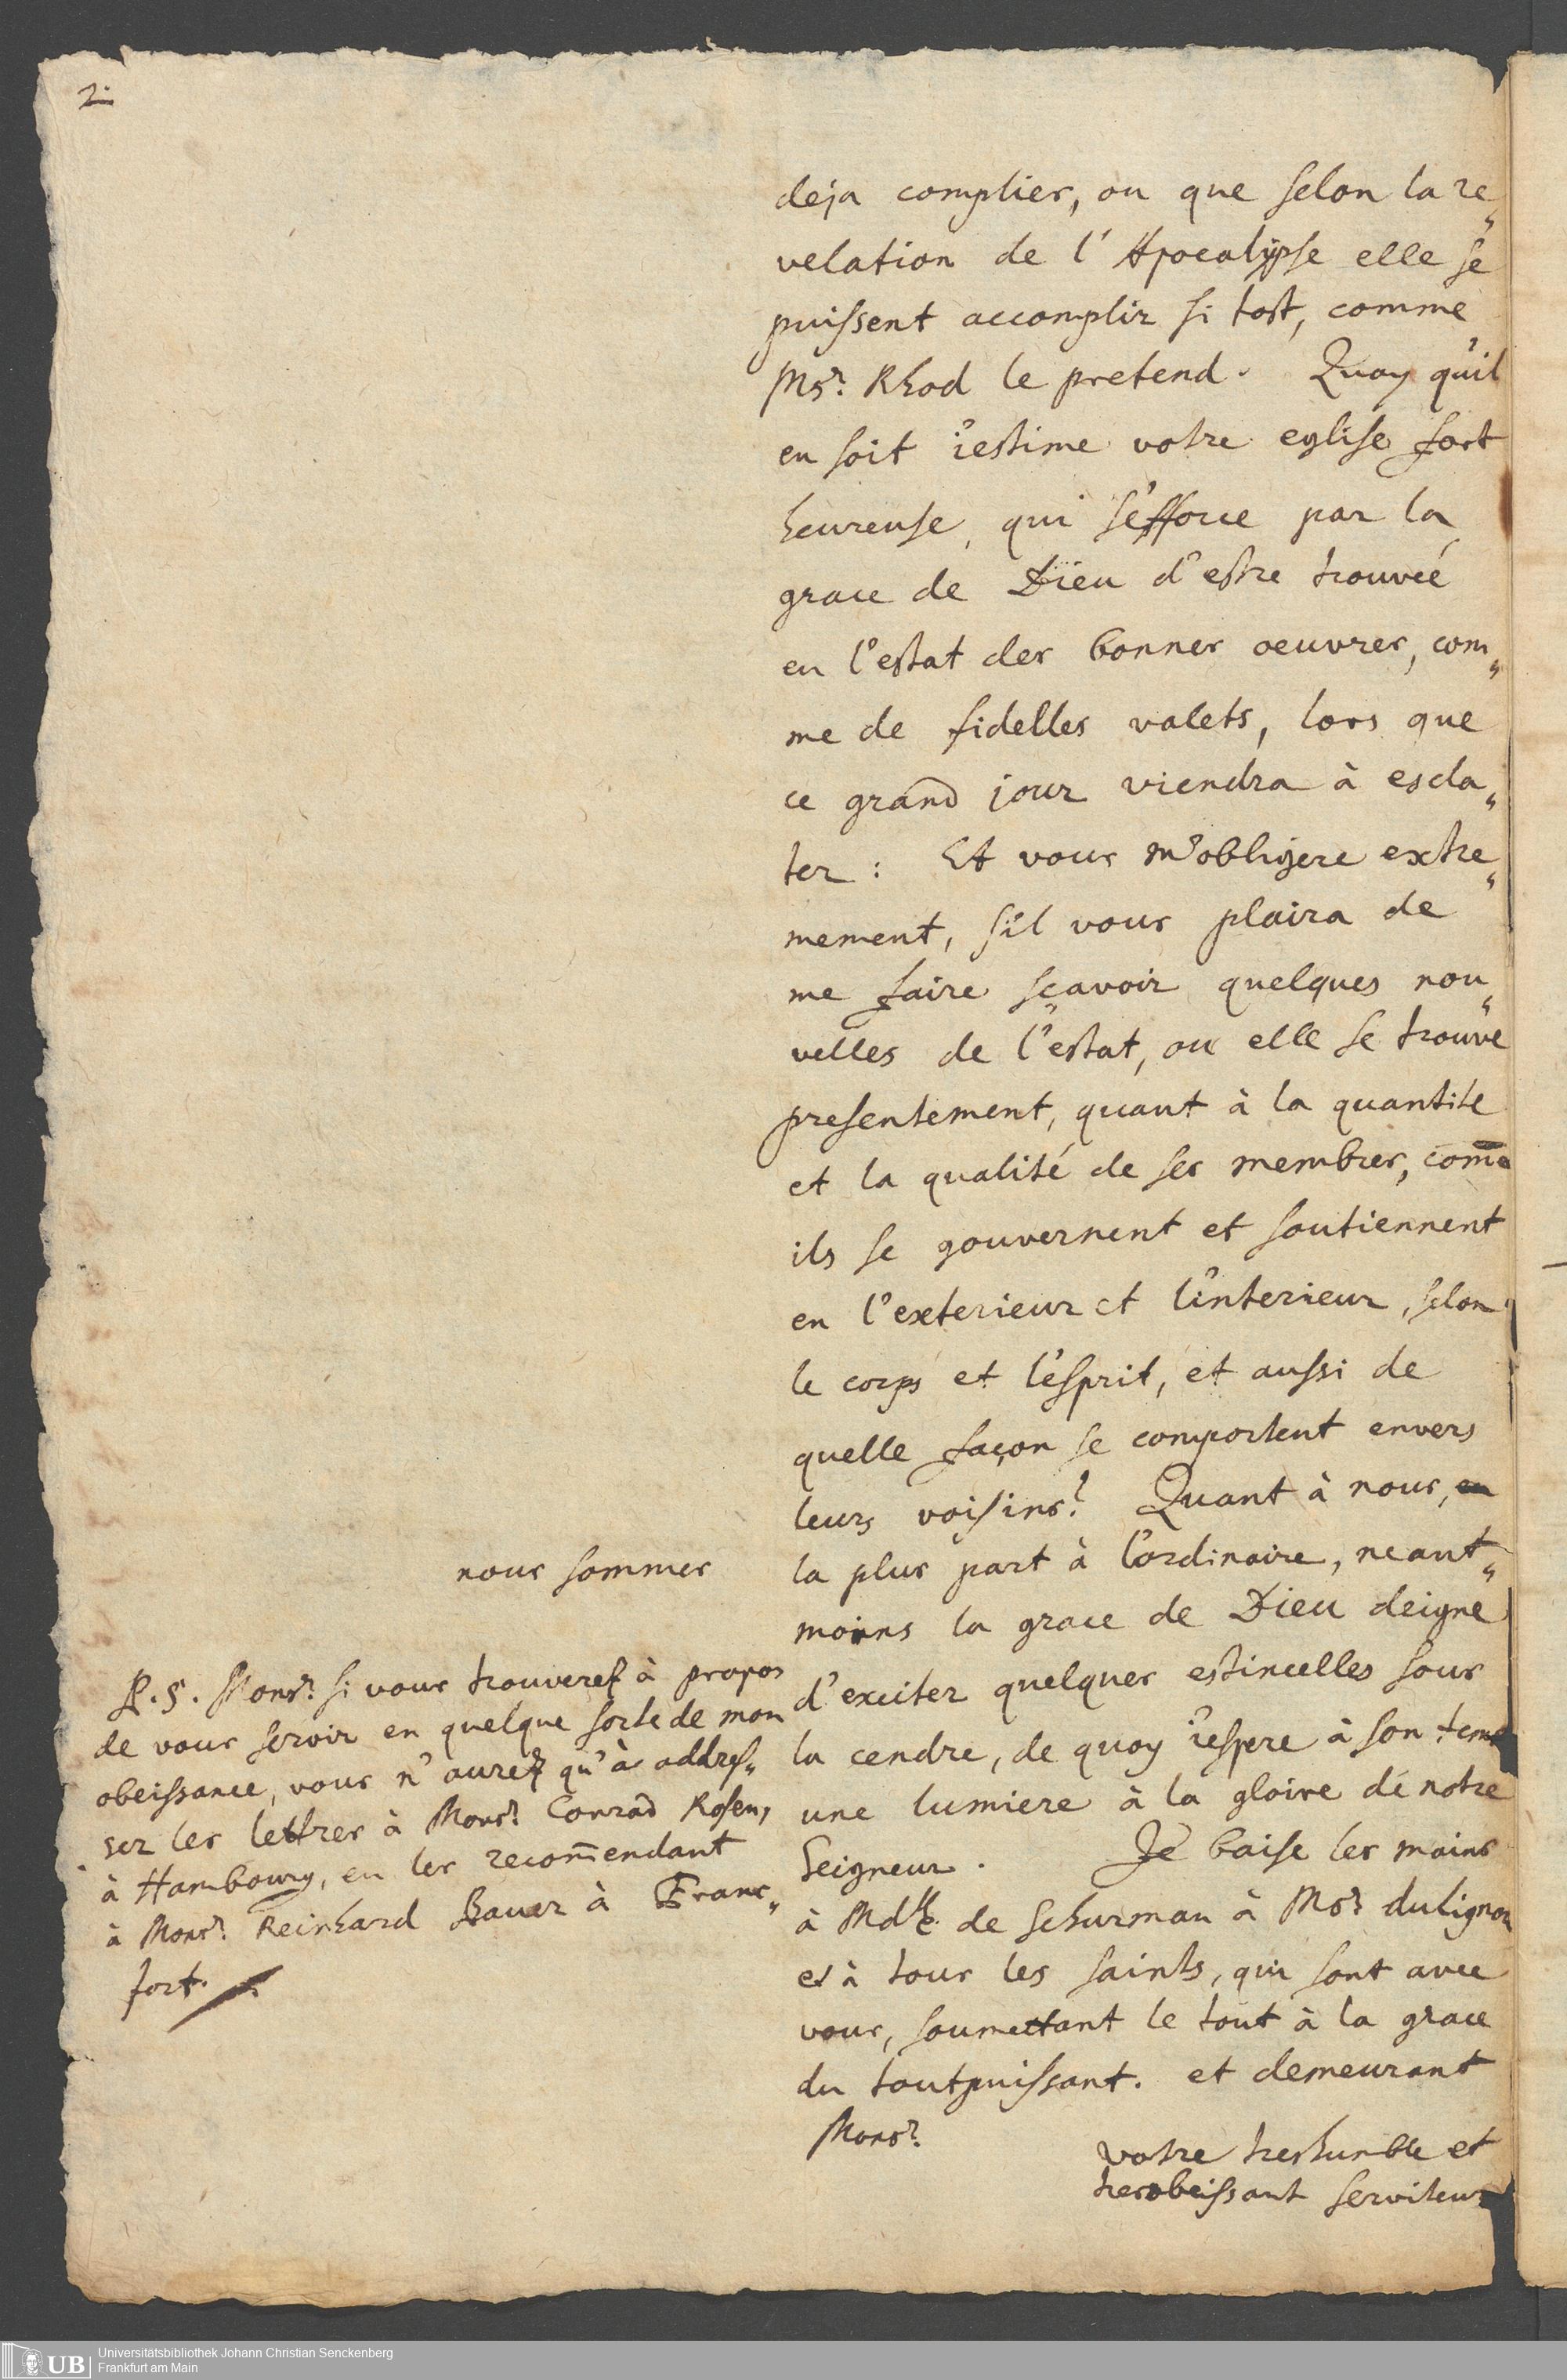 2.
deja complier, ou que selon la re„
velation de l'Apocalypse elle se
puissent accomplir si tost, comme
Msr. Rhod le pretend. Quoy qu'il
en soit i'estime votre eglise fort
heureuse, qui s'efforce par la
grace de Dieu d'estre trouveé
en l'estat des bonnes oeuvres, com„
me de fidelles valets, lors que
ce grand jour viendra à escla„
ter: Et vous m'obligere extre„
mement, s'il vous plaira de
me faire sçavoir quelques nou„
velles de l'estat, ou elle se trouve
presentement, quant à la quantite
et la qualité de ses membres, com̄e
ils se gouvernent et soutiennent
en l'exterieur et l'interieur, selon
le corps et l'esprit, et aussi de
quelle façon se comportent envers
leurs voisins? Quant à nous, en
nous sommes
la plus part à l'ordinaire, neant„
moins la grace de Dieu deigne
d'exciter quelques estincelles sous
la cendre, de quoy i'espere à son tems
une lumiere à la gloire de notre
Seigneur. Je baise les mains
à Mdlle. de Schurman à Msr. du Lignon
et à tous les saints, qui sont avec
vous, soumettant le tout à la grace
du toutpuissant. et demeurant
Monsr.
votre treshumble et
tresobeissant serviteur
P.S. Monsr. si vous trouverez à propos
de vous servir en quelque sorte de mon
obeissance, vous n'aurez qu'à addres„
ser les lettres à Monsr. Conrad Rosen,
à Hambourg, en les recom̄endant
à Monsr. Reinhard Bauer à Franc„
fort.
UB
Universitätsbibliothek Johann Christian Senckenberg
Frankfurt am Main